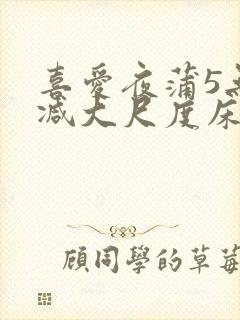 喜愛夜蒲5無
減大尺度床
顧同學的草莓